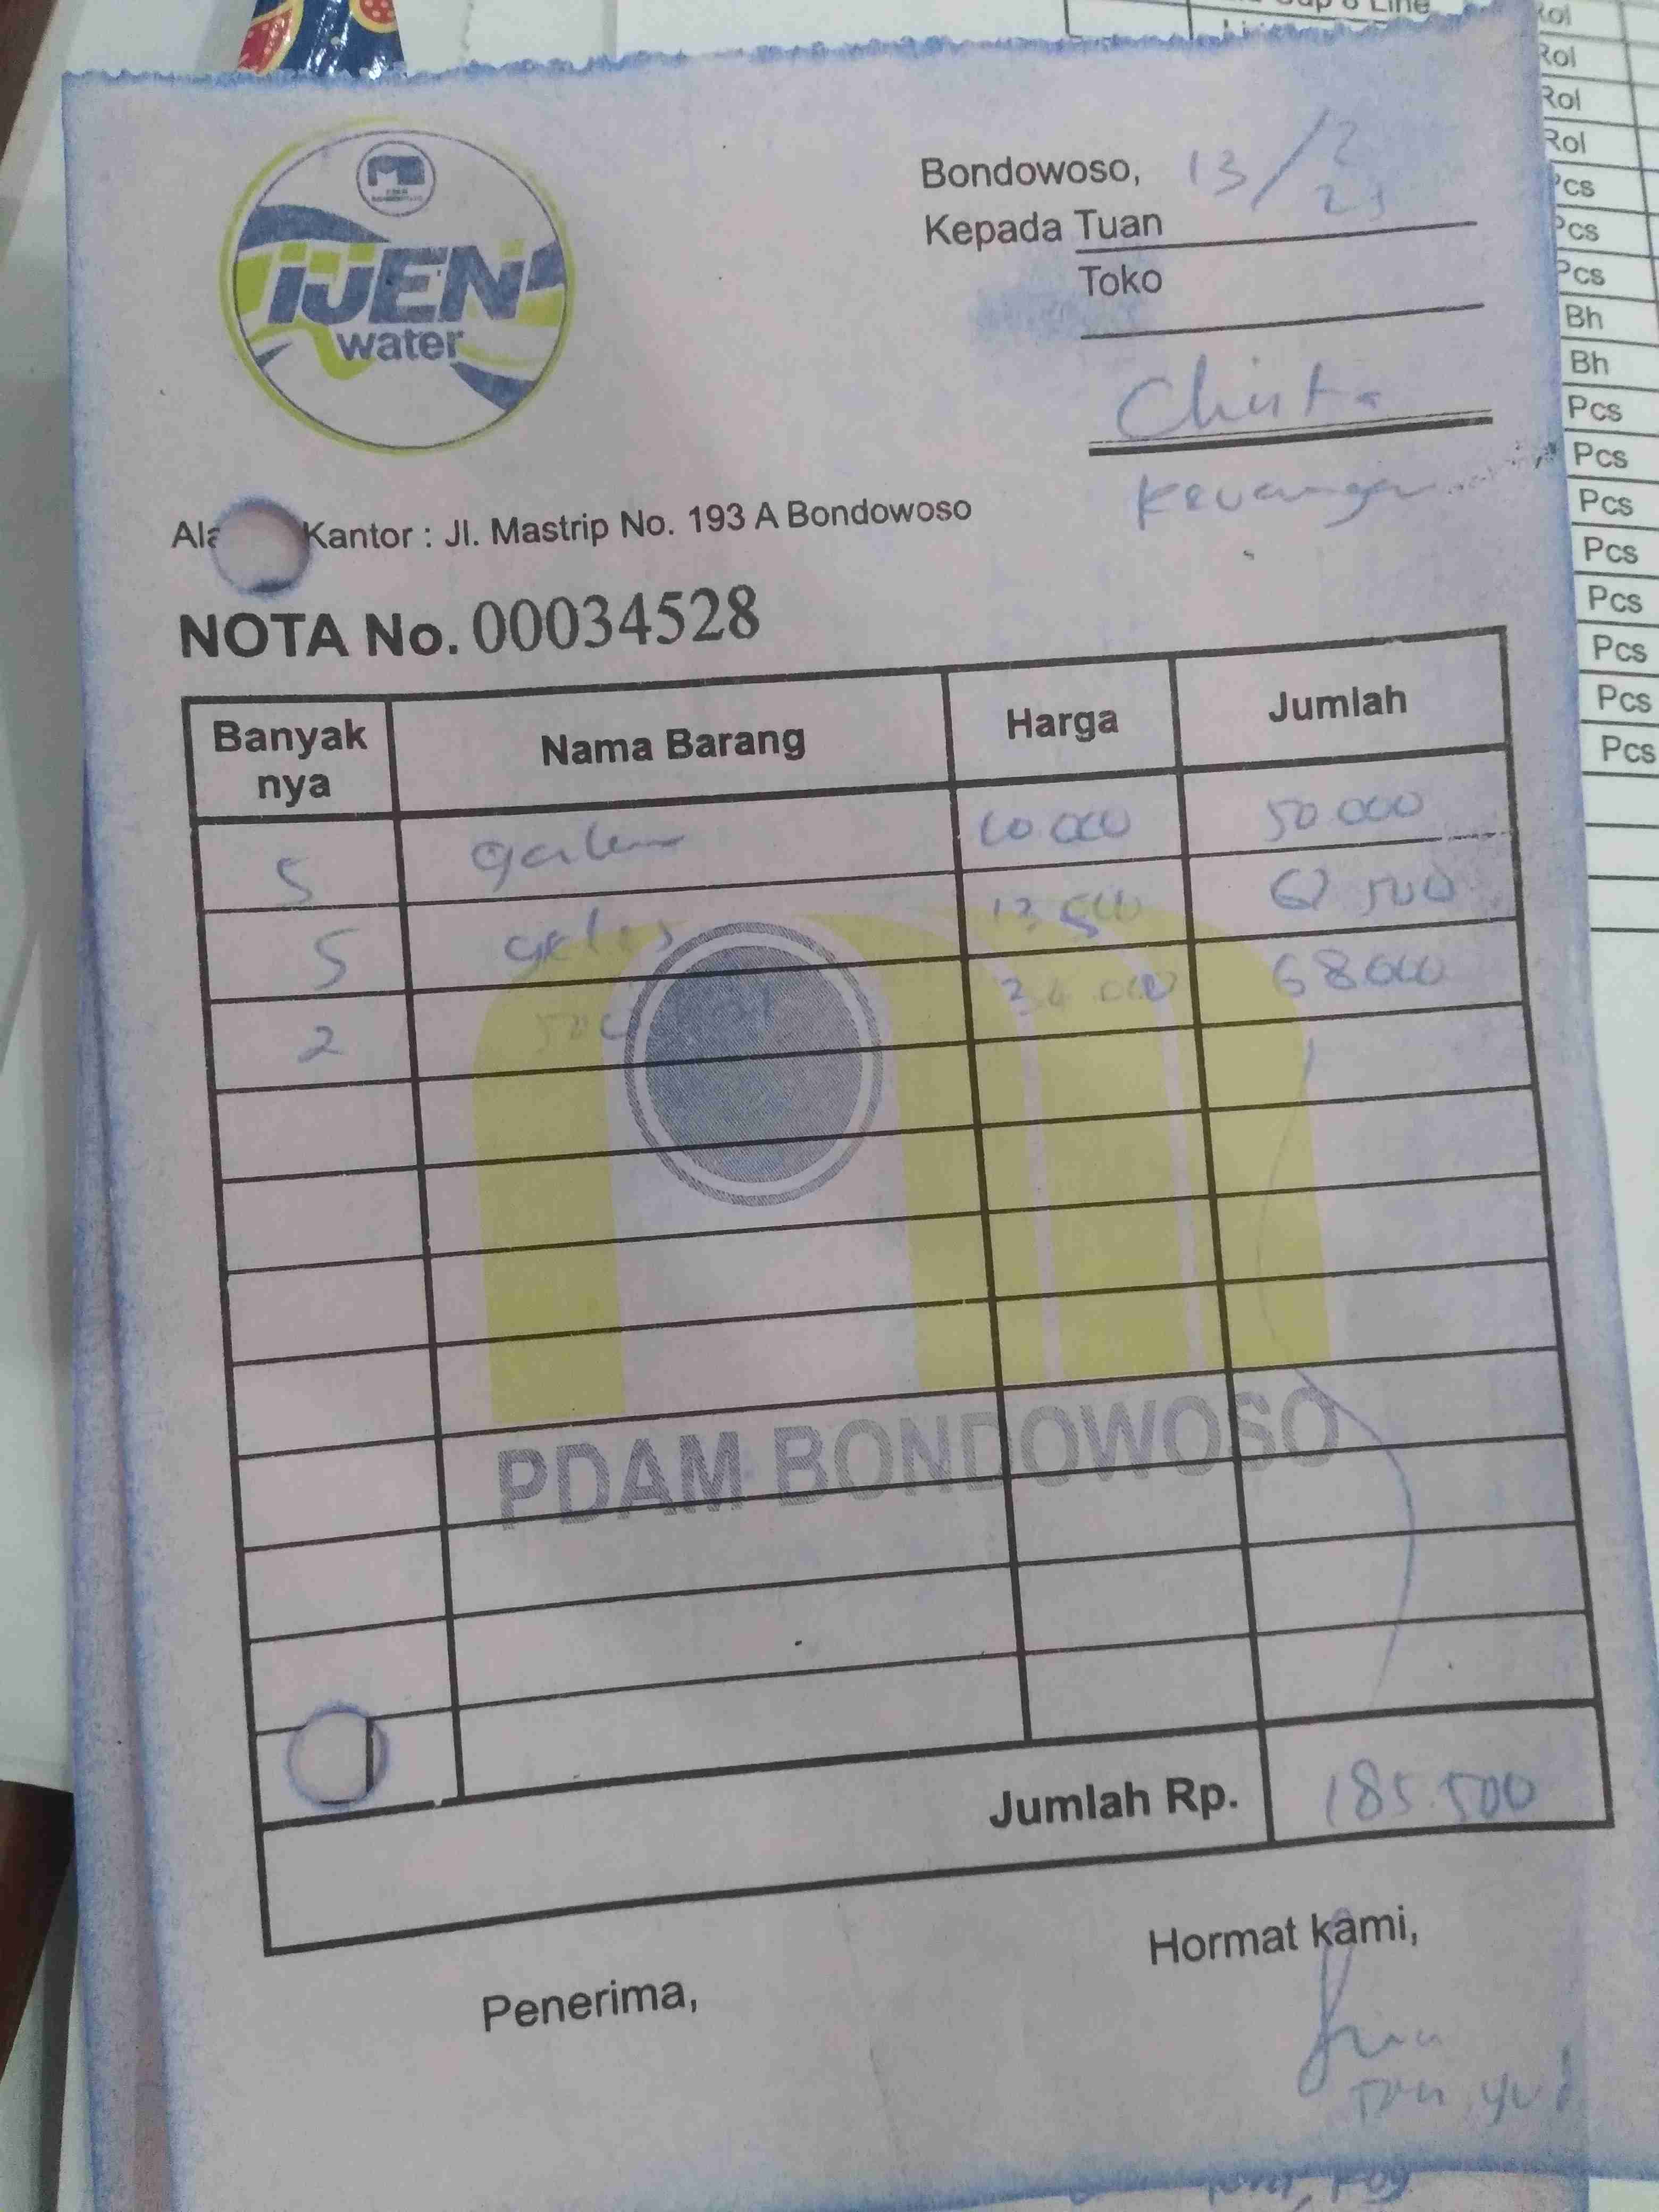 IJEN
water
Bondowoso, 13/2
23
Kepada Tuan
Toko
Chista
Keuangan
Kantor : Jl. Mastrip No. 193 A Bondowoso
NOTA No. 00034528
Banyak nya Nama Barang Harga Jumlah
5 galon 10 000 50 000
5 gelas 13 500 67 500
2 34 000 68 000
PDAM BONDOWOSO
Jumlah Rp. 185.500
Penerima,
Hormat kami,
Rol
Rol
Rol
Rol
Pcs
Pcs
Pcs
Bh
Bh
Pcs
Pcs
Pcs
Pcs
Pcs
Pcs
Pcs
Pcs